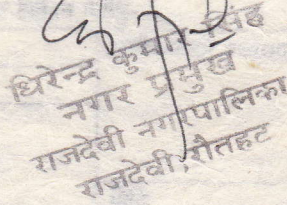 धिरेन्द्र कुमार सिंह
नगर प्रमुख
राजदेवी नगरपालिका
राजदेवी, रौतहट